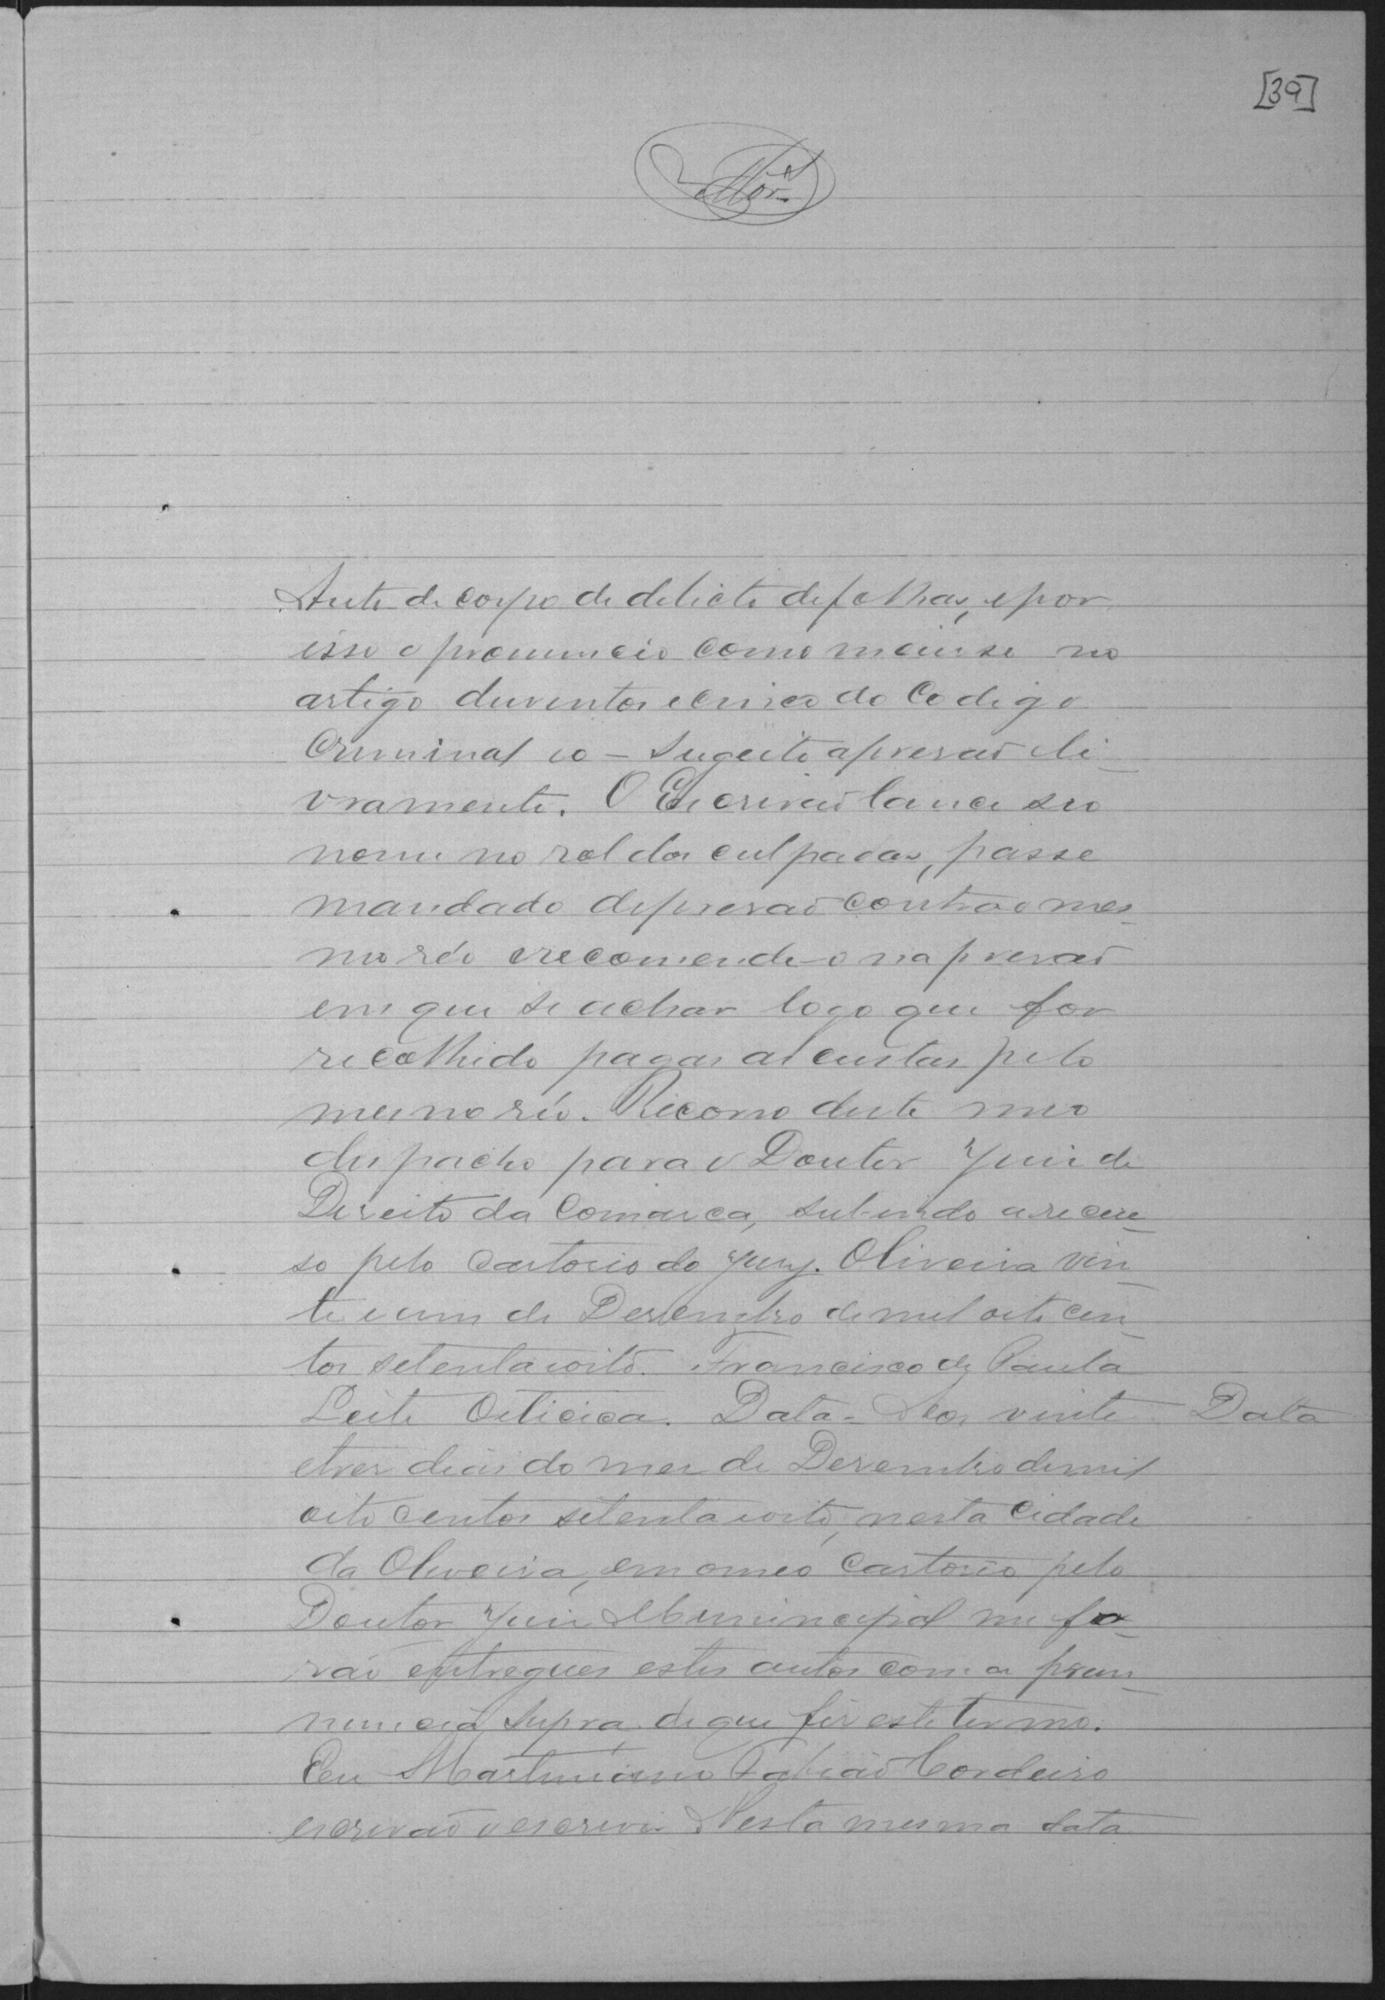 [39]
Auto de corpo de delicto de folhas, e por
isso o pronuncio como incurso no
artigo duzentos e cinco do Codigo
Criminal e o – sugeito a prisão e li-
vramento. O Escrivão lance seo
nome no rol dos culpados, passe
mandado de prisão contra o mes-
mo réo e recomende-o na prisão
em que se achar logo que for
recolhido pagas as custas pelo
mesmo réo. Recorro deste meo
despacho para o Doutor Juiz de
Direito da Comarca, subindo o recur-
so pelo cartorio do Jury. Oliveira vin-
te e um de Dezembro de mil oito cen-
tos setenta e oito. Francisco de Paula
Leite Oiticica. Data – Aos vinte
Data
e tres dias do mez de Dezembro de mil
oito centos setenta e oito, nesta Cidade
da Oliveira, em o meo Cartorio, pelo
Doutor Juiz Municipal me fo-
rão entregues estes autos com a pron-
nuncia supra, de que fiz este termo.
Eu Martiniano Fabião Cordeiro
escrivão o escrevi. Nesta mesma data